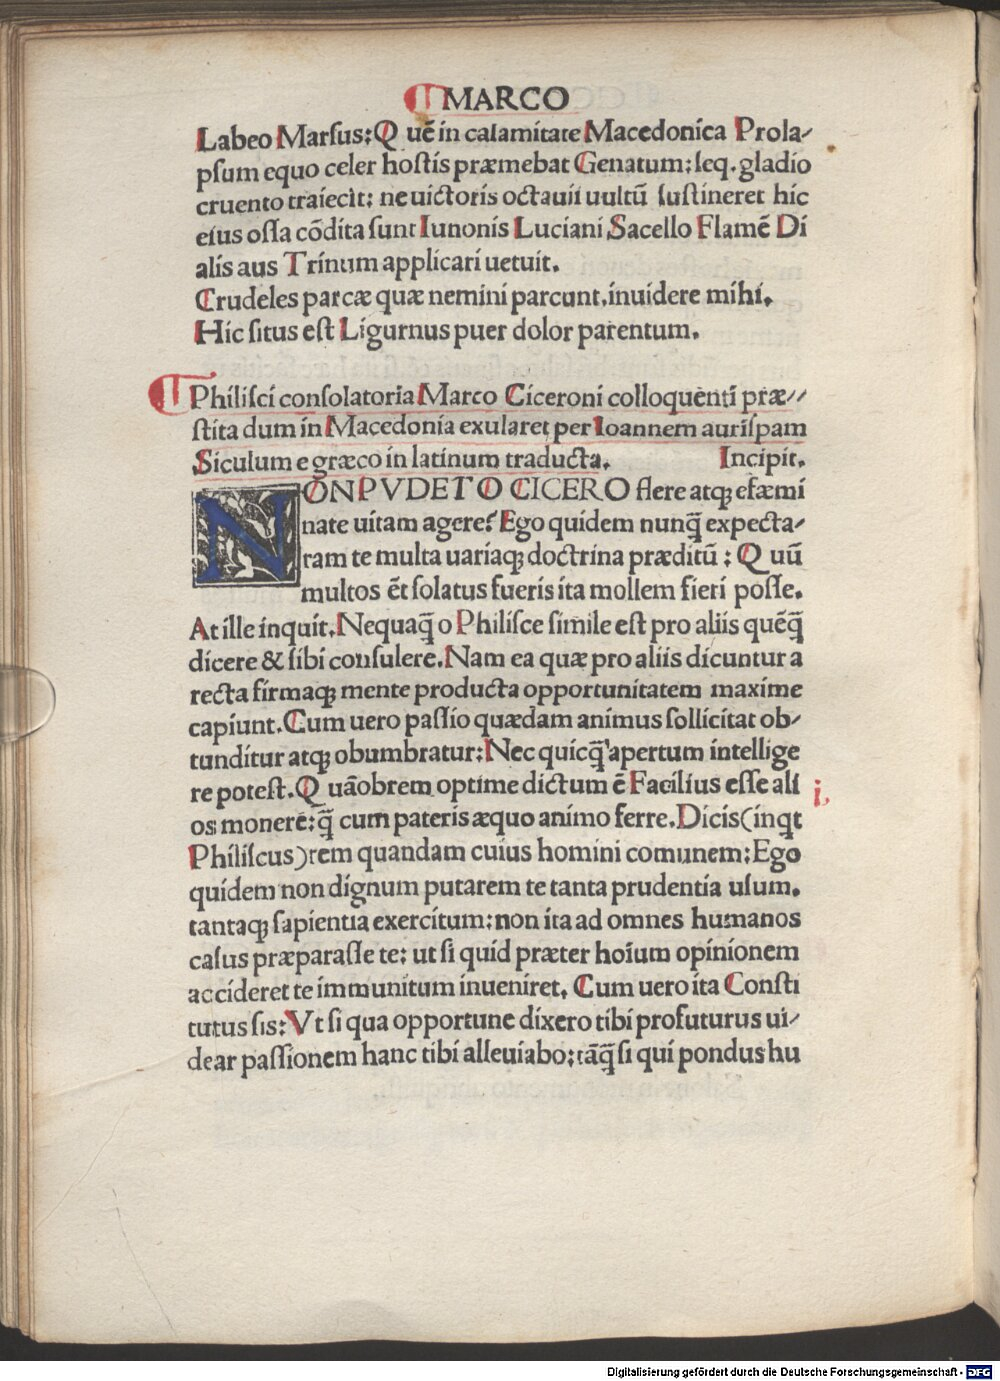 ¶MARCO
Labeo Marſus: Q uē in calamitate Macedonica Prola⸗
pſum equo celer hoſtis præmebat Genatum: ſeq. gladio
cruento traiecit: ne uictoris octauii uultū ſuſtineret hic
eius oſſa cōdita ſunt Iunonis Luciani Sacello Flamē Di
alis aus Trinum applicari uetuit.
Crudeles parcæ quæ nemini parcunt, inuidere mihi.
Hic ſitus eſt Ligurnus puer dolor parentum.
¶Philiſci conſolatoria Marco Ciceroni colloquenti præ⸗
ſtita dum in Macedonia exularet per Ioannem auriſpam
Siculum e græco in latinum traducta. Incipit.
NON PVDET O CICERO flere atqꝫ efæmi
nate uitam agere? Ego quidem nunq̄ expecta⸗
ram te multa uariaqꝫ doctrina præditū : Q uū
multos ēt ſolatus fueris ita mollem fieri poſſe.
At ille inquit. Nequaq̄ o Philiſce ſimile eſt pro aliis quēq̄
dicere & ſibi conſulere. Nam ea quæ pro aliis dicuntur a
recta firmaqꝫ mente producta opportunitatem maxime
capiunt. Cum uero paſſio quædam animus ſollicitat ob⸗
tunditur atqꝫ obumbratur: Nec quicq̄ apertum intellige
re poteſt. Q uāobrem optime dictum ē Facilius eſſe ali
os monere: q̄ cum pateris æquo animo ferre. Dicis (inqt
i,
Philiſcus) rem quandam cuius homini comunem: Ego
quidem non dignum putarem te tanta prudentia uſum.
tantaqꝫ ſapientia exercitum: non ita ad omnes humanos
caſus præparaſſe te: ut ſi quid præter hoīum opinionem
accideret te immunitum inueniret. Cum uero ita Conſti
tutus ſis: Vt ſi qua opportune dixero tibi profuturus ui⸗
dear paſſionem hanc tibi alleuiabo: tāq̄ ſi qui pondus hu
Digitalisierung gefördert durch die Deutsche Forschungsgemeinschaft - DFG